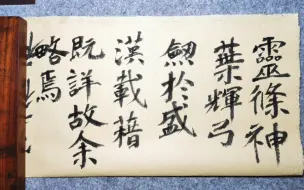 靈篠神
葉輝弓
劒於盛
漢載藉
既詳故余
略焉